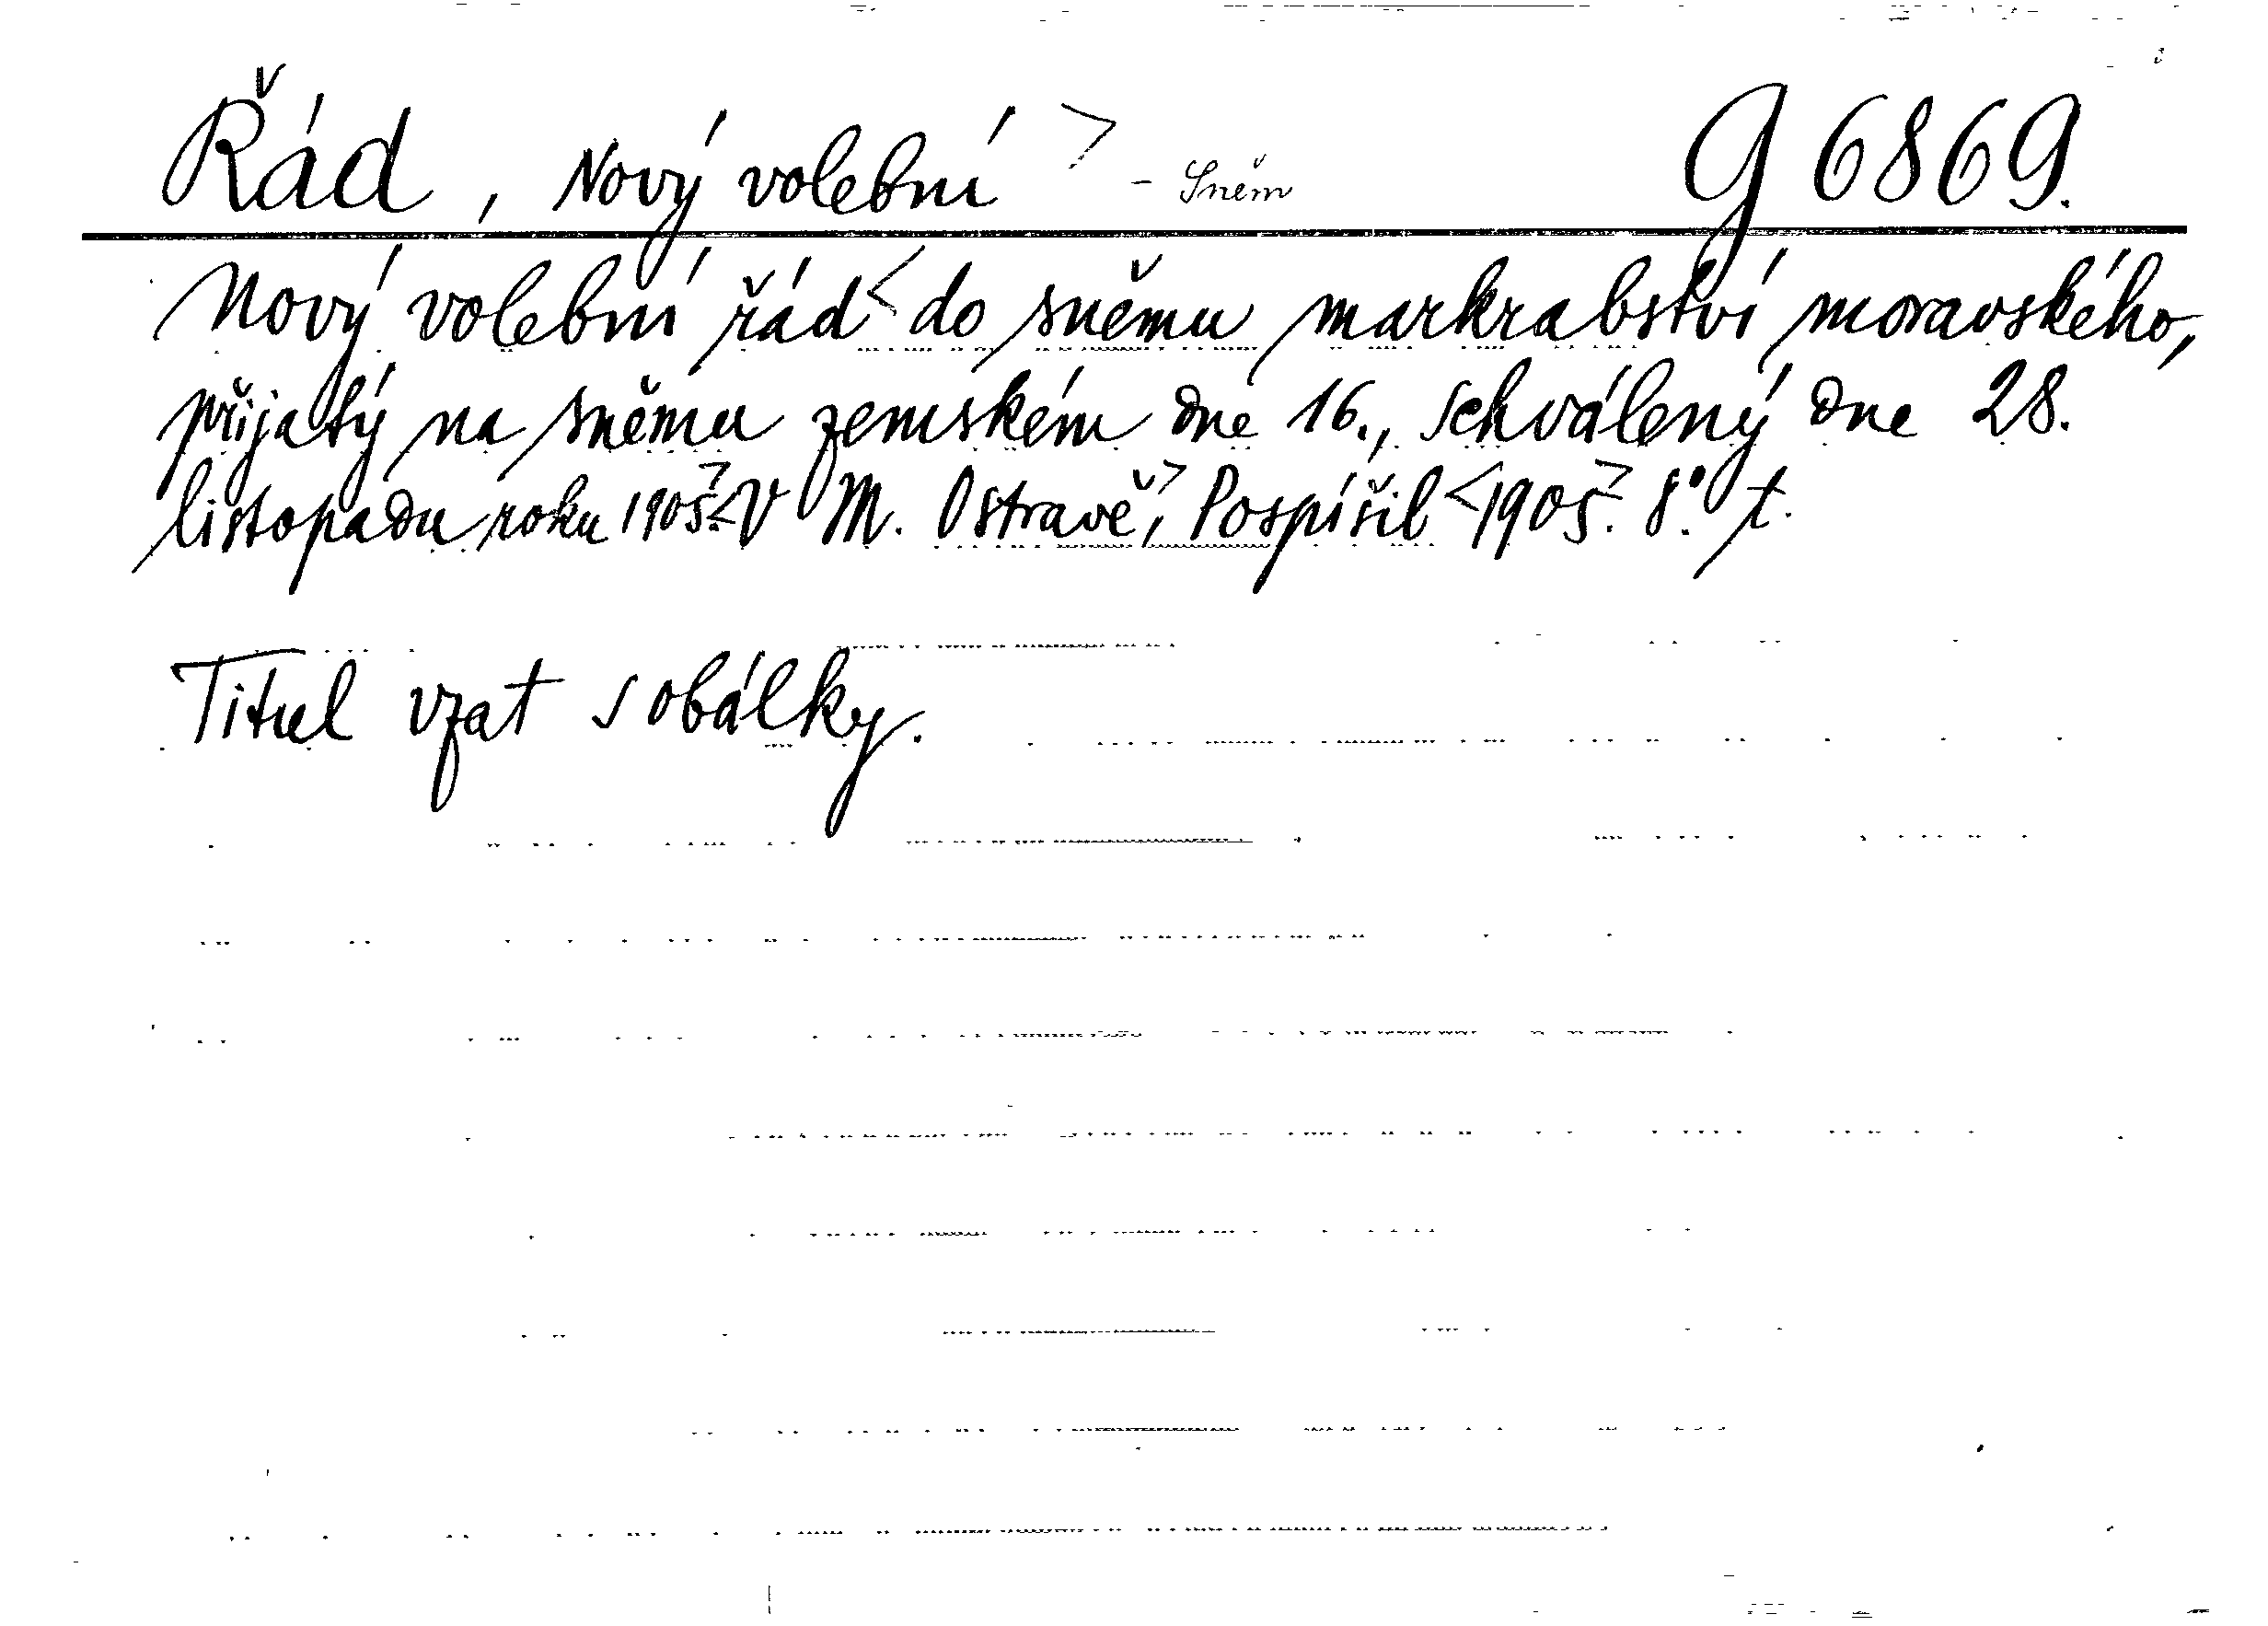 Řád, Nový volební > - Sněm g 6869.
Nový volební řád < do sněmu markrabství moravského,
přijatý na sněmu zemském dne 16., schválený dne 28.
listopadu roku 1905. > < V M. Ostravě, > Pospíšil < 1905. > 8°. t.
Titul vzat s obálky.